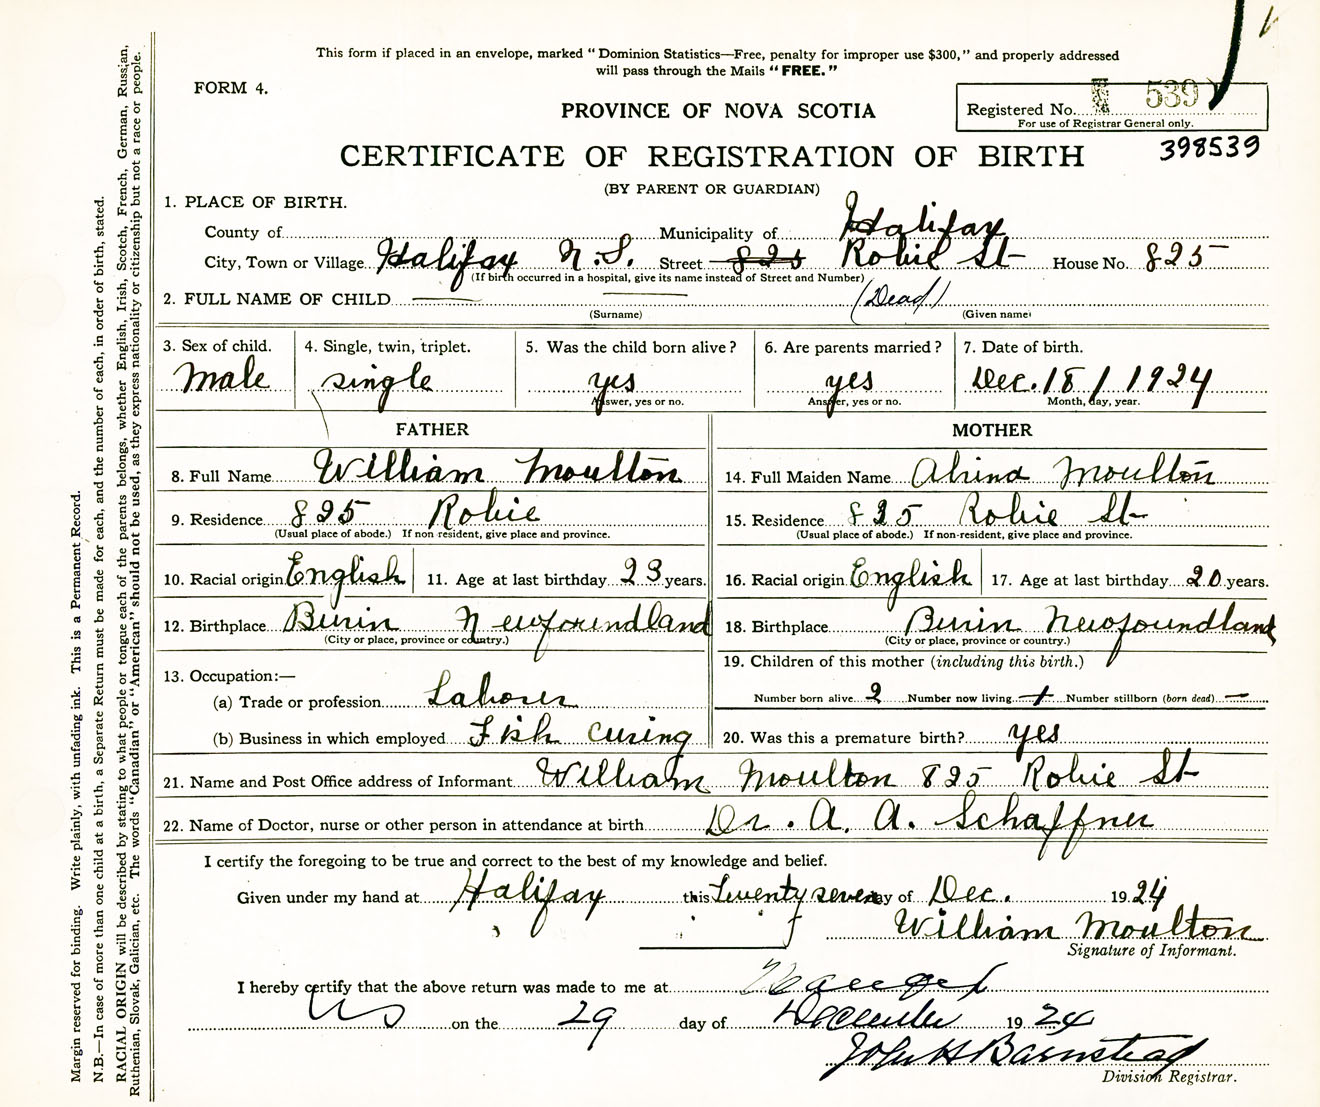 This form if placed in an envelope, marked “ Dominion Statistics—Free, penalty for improper use $300,” and properly addressed
will pass through the Mails “ FREE. ”
FORM 4.
PROVINCE OF NOVA SCOTIA
Registered No. 539
For use of Registrar General only.
398539
CERTIFICATE OF REGISTRATION OF BIRTH
(BY PARENT OR GUARDIAN)
1. PLACE OF BIRTH.
County of Municipality of Halifax
City, Town or Village Halifax N.S. Street 825 Robie St House No. 825
(If birth occurred in a hospital, give its name instead of Street and Number)
2. FULL NAME OF CHILD (Dead)
(Surname) (Given name)
3. Sex of child. 4. Single, twin, triplet. 5. Was the child born alive? 6. Are parents married? 7. Date of birth.
Male single yes yes Dec. 18 / 1924
Answer, yes or no. Answer, yes or no. Month, day, year.
FATHER MOTHER
8. Full Name William Moulton 14. Full Maiden Name Moulton
9. Residence 825 Robie 15. Residence 825 Robie St
(Usual place of abode.) If non-resident, give place and province. (Usual place of abode.) If non-resident, give place and province.
10. Racial origin English 11. Age at last birthday 23 years. 16. Racial origin English 17. Age at last birthday 20 years.
12. Birthplace Burin Newfoundland 18. Birthplace Burin Newfoundland
(City or place, province or country.) (City or place, province or country.)
13. Occupation:— 19. Children of this mother (including this birth.)
(a) Trade or profession Laborer Number born alive 2 Number now living 1 Number stillborn (born dead) —
(b) Business in which employed Fish curing 20. Was this a premature birth? yes
21. Name and Post Office address of Informant William Moulton 825 Robie St
22. Name of Doctor, nurse or other person in attendance at birth Dr. A. A. Schaffner
I certify the foregoing to be true and correct to the best of my knowledge and belief.
Given under my hand at Halifax this Twenty seven day of Dec. 1924
William Moulton
Signature of Informant.
I hereby certify that the above return was made to me at Halifax
NS on the 29 day of December 1924
John H Barnstead
Division Registrar.
Margin reserved for binding. Write plainly, with unfading ink. This is a Permanent Record.
N.B.—In case of more than one child at a birth, a Separate Return must be made for each, and the number of each, in order of birth, stated.
RACIAL ORIGIN will be described by stating to what people or tongue each of the parents belongs, whether English, Irish, Scotch, French, German, Russian,
Ruthenian, Slovak, Galician, etc. The words “Canadian” or “American” should not be used, as they express nationality or citizenship but not a race or people.